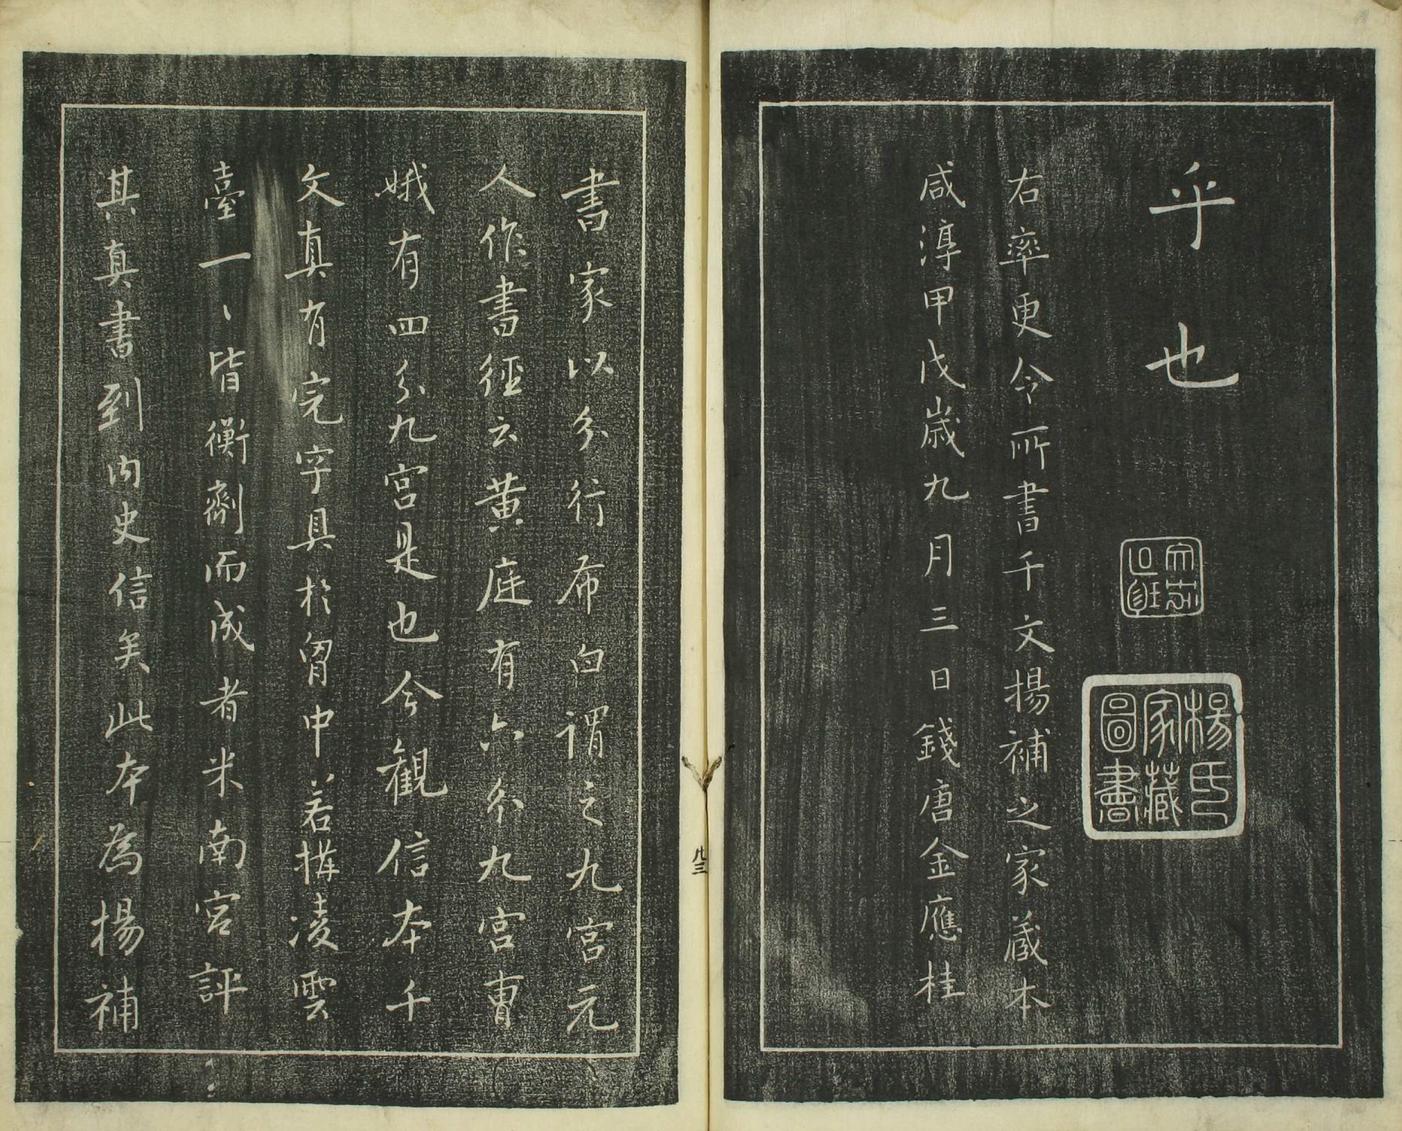 乎也
楊氏
家藏
圖書
右率更令所書千文楊補之家藏本
咸淳甲戌歲九月三日錢唐金應桂
廿三
書家以分行布白謂之九宮元
人作書經云黃庭有六分九宮曺
娥有四分九宮是也今觀信本千
文真有完字具於胷中若構凌雲
臺一〻皆衡劑而成者米南宮評
其真書到內史信矣此本為楊補